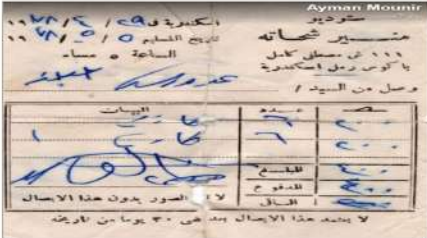 Ayman Mounir
ستوديو
منير شحاته
١١١ ش مصطفى كامل
باكوس رمل اسكندرية
اسكندرية فى ٢٩ / ٤ / ١٩٧٨
تاريخ التسليم ٥ / ٥ / ١٩٧٨
الساعة ٥ مساء
وصل من السيد /
البيانات عدد
٦ ٢٠٠
٦ ٢٠٠
المبلغ ٤٠٠
المدفوع ٤٠٠
الباقى
الصور بدون هذا الايصال
لا يعتمد هذا الايصال بعد مضى ٣٠ يوما من تاريخه